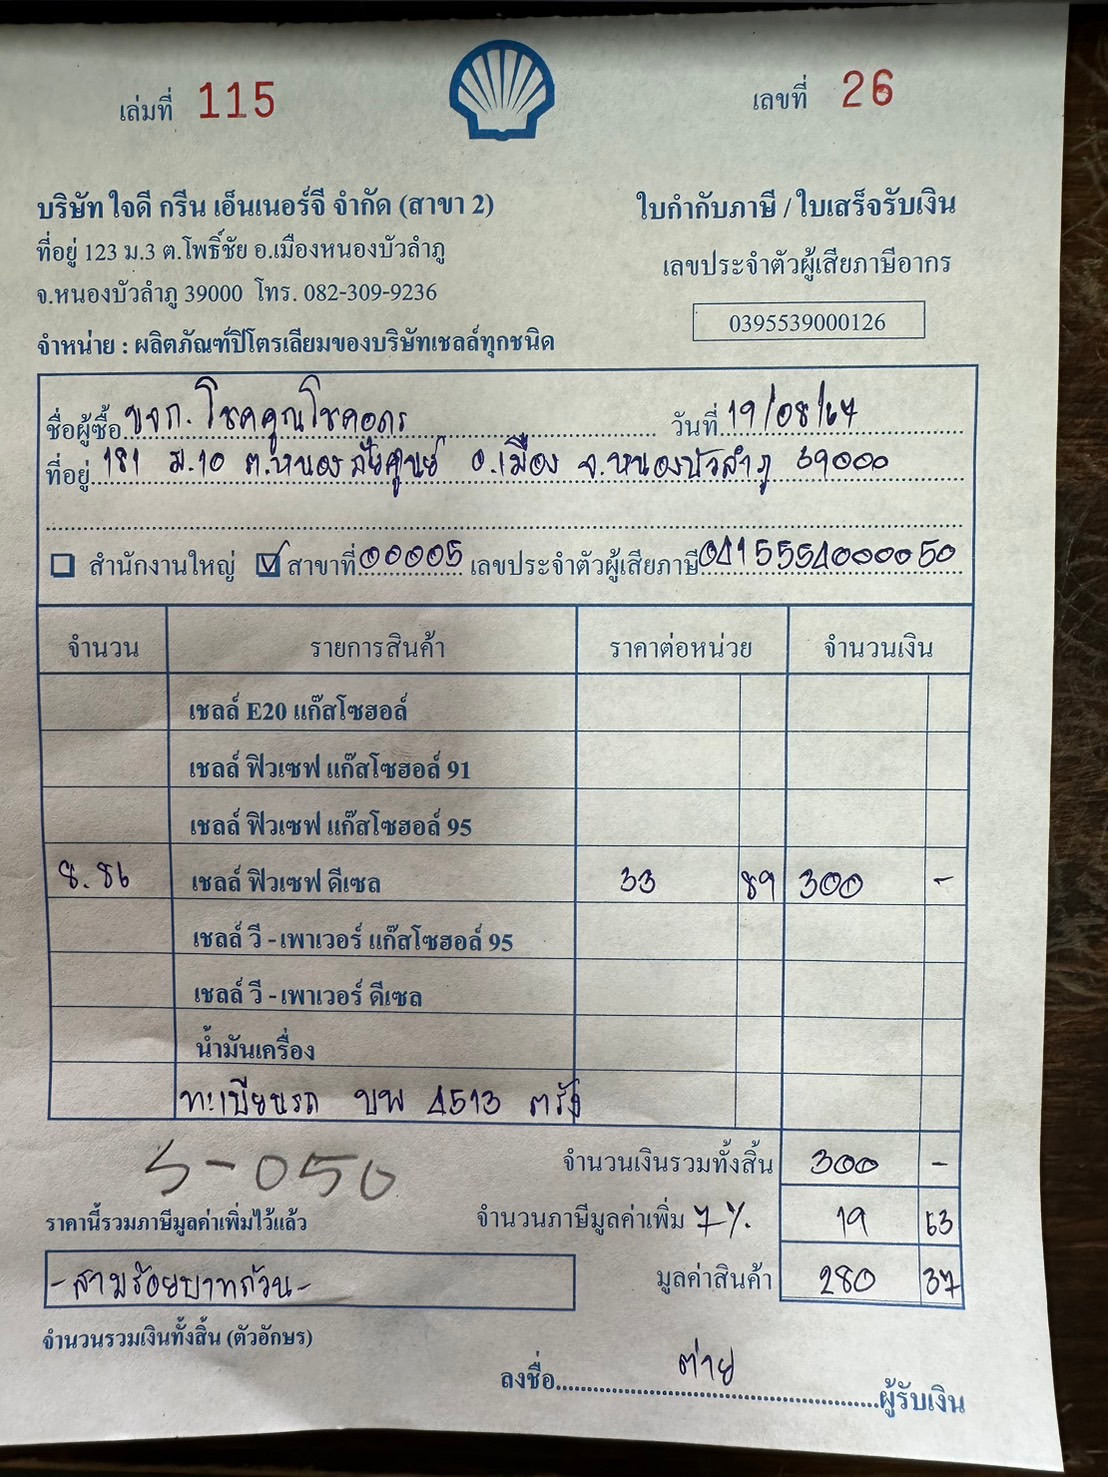 เล่มที่ 115
เลขที่ 26
บริษัท ใจดี กรีน เอ็นเนอร์จี จำกัด (สาขา 2)
ใบกำกับภาษี / ใบเสร็จรับเงิน
ที่อยู่ 123 ม.3 ต.โพธิ์ชัย อ.เมืองหนองบัวลำภู
เลขประจำตัวผู้เสียภาษีอากร
จ.หนองบัวลำภู 39000 โทร. 082-309-9236
0395539000126
จำหน่าย : ผลิตภัณฑ์ปิโตรเลียมของบริษัทเชลล์ทุกชนิด
ชื่อผู้ซื้อ หจก. โชคคูณโชคอดร วันที่ 19/08/67
ที่อยู่ 181 ม.10 ต.หนองภัยศูนย์ อ.เมือง จ.หนองบัวลำภู 39000
สำนักงานใหญ่ สาขาที่ 00005 เลขประจำตัวผู้เสียภาษี 0415554000050
จำนวน รายการสินค้า ราคาต่อหน่วย จำนวนเงิน
เชลล์ E20 แก๊สโซฮอล์
เชลล์ ฟิวเซฟ แก๊สโซฮอล์ 91
เชลล์ ฟิวเซฟ แก๊สโซฮอล์ 95
8.86 เชลล์ ฟิวเซฟ ดีเซล 33 89 300 -
เชลล์ วี - เพาเวอร์ แก๊สโซฮอล์ 95
เชลล์ วี - เพาเวอร์ ดีเซล
น้ำมันเครื่อง
ทะเบียนรถ บพ 4513 ตรัง
จำนวนเงินรวมทั้งสิ้น 300 -
S-050
ราคานี้รวมภาษีมูลค่าเพิ่มไว้แล้ว
จำนวนภาษีมูลค่าเพิ่ม 7%. 19 63
มูลค่าสินค้า 280 37
-สามร้อยบาทถ้วน-
จำนวนรวมเงินทั้งสิ้น (ตัวอักษร)
ลงชื่อ ต่าย ผู้รับเงิน